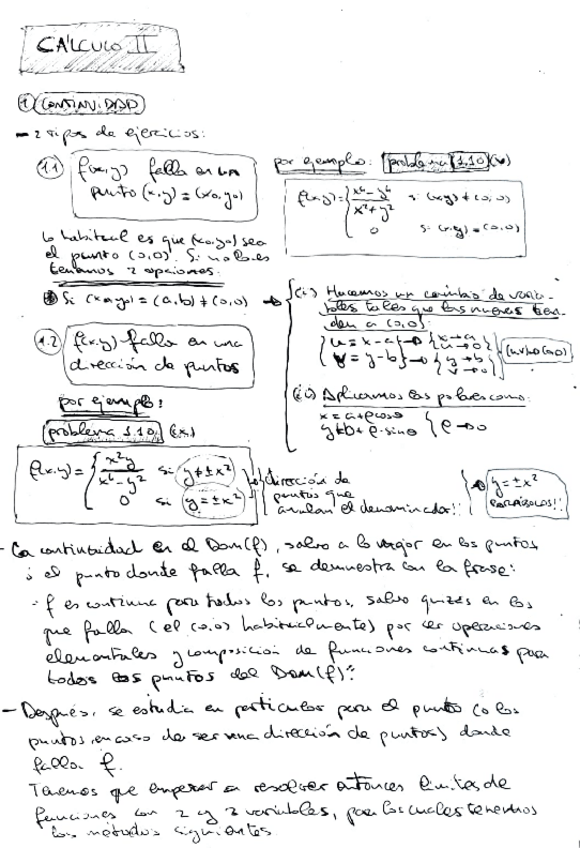 CÁLCULO II
1 CONTINUIDAD
- 2 tipos de ejercicios:
1.1 f(x,y) falla en un
punto (x,y) = (x0,y0)
por ejemplo: problema 1.10 (v)
f(x,y) = { x⁶-y⁶ / x²+y² si (x,y) ≠ (0,0)
0 si (x,y) = (0,0)
Lo habitual es que (x0,y0) sea
el punto (0,0). Si no lo es
tenemos 2 opciones:
Si (x0,y0) = (a,b) ≠ (0,0) →
(i) Hacemos un cambio de varia-
bles tales que las nuevas tien-
den a (0,0)
{ u = x - a → { x → a u → 0
v = y - b → { y → b v → 0
(u,v) → (0,0)
(ii) Aplicamos las polares como:
x = a + ρcosθ
y = b + ρ·sinθ { ρ → 0
1.2 f(x,y) falla en una
dirección de puntos
por ejemplo:
problema 1.10 (ix)
f(x,y) = { x²y / x⁶-y² si y ≠ ±x²
0 si y = ±x²
dirección de
puntos que
anulan el denominador!!
→ y = ±x²
PARÁBOLAS!!
- La continuidad en el Dom(f), salvo a lo mejor en los puntos
ó el punto donde falla f, se demuestra con la frase:
"f es continua para todos los puntos, salvo quizás en los
que falla (el (0,0) habitualmente) por ser operaciones
elementales y composición de funciones continuas para
todos los puntos del Dom(f)"
- Después, se estudia en particular para el punto (o los
puntos, en caso de ser una dirección de puntos) donde
falla f.
Tenemos que empezar a resolver entonces límites de
funciones con 2 y 3 variables, para los cuales tenemos
los métodos siguientes